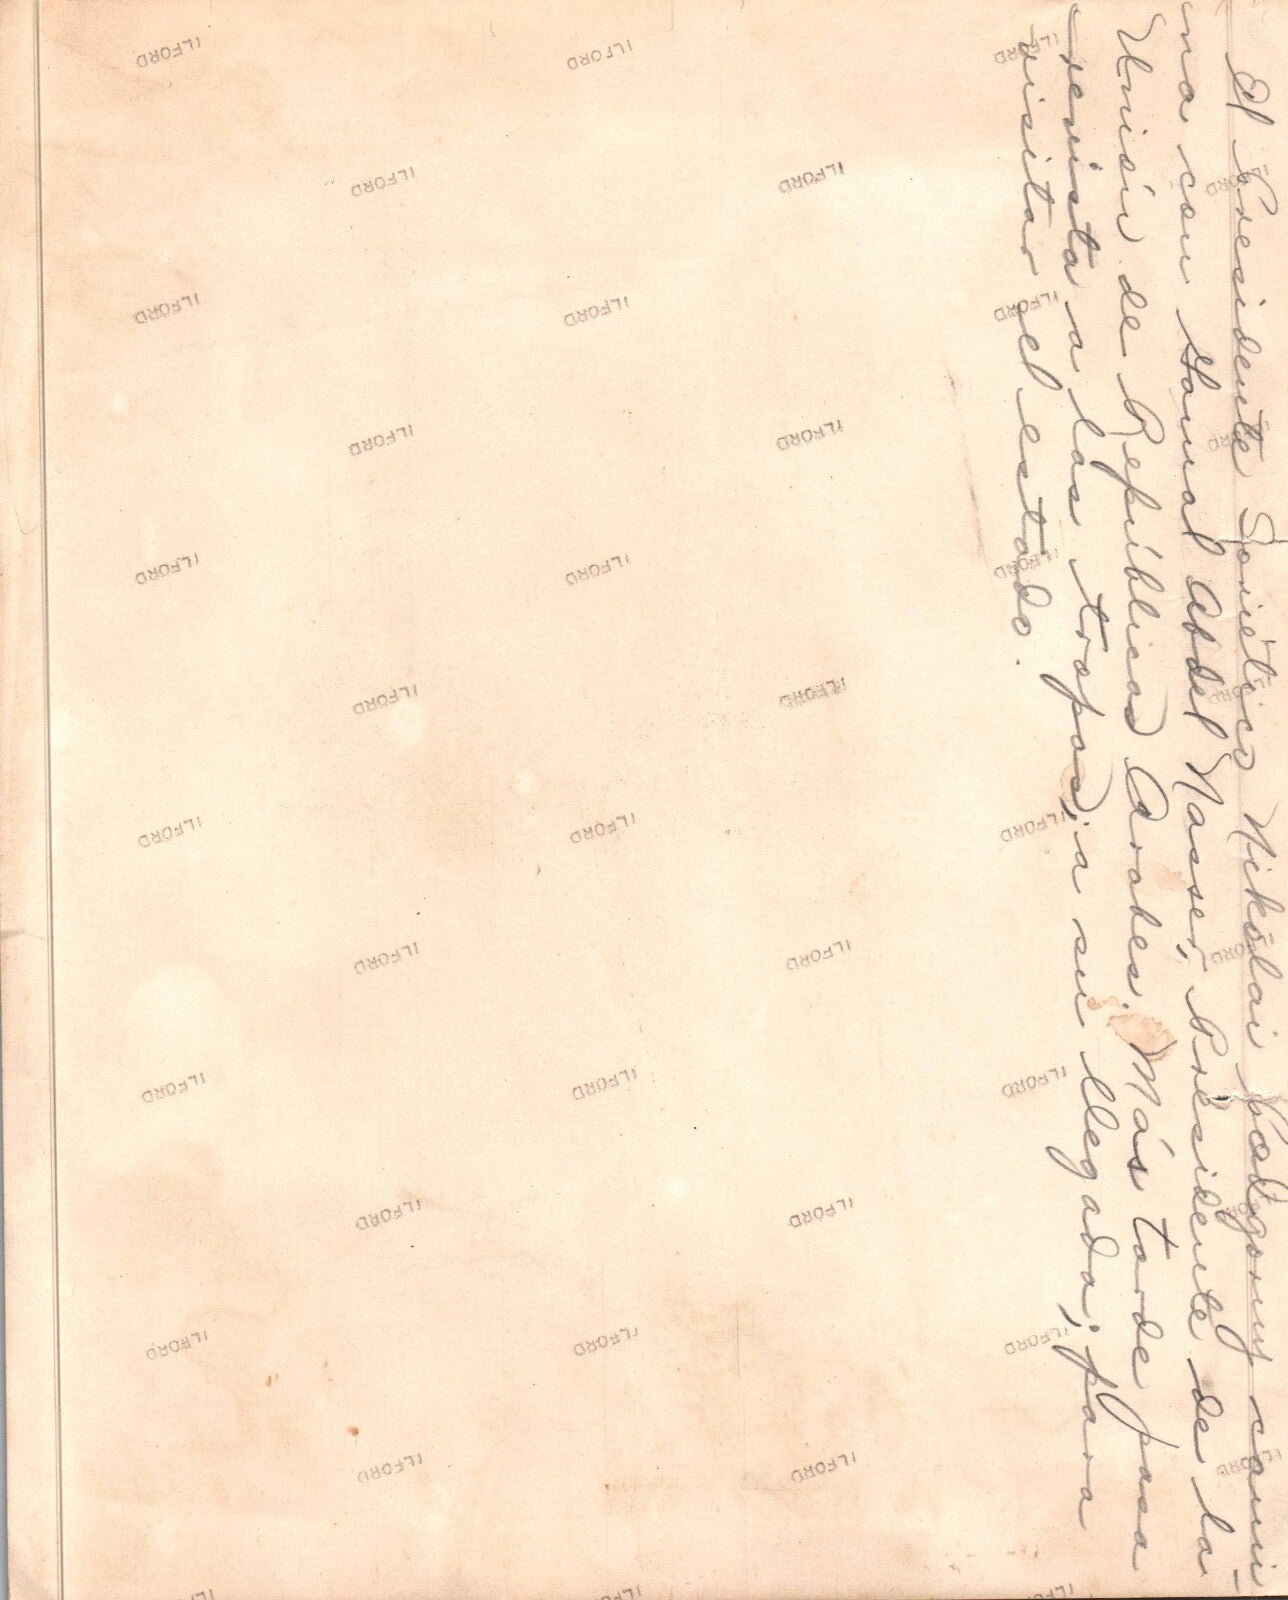 El Presidente Soviético Nikolai Podgorny cami-
na con Gamal Abdel Nasser, Presidente de la
Unión de Repúblicas Arabes. Más tarde pasa
revista a las tropas, a su llegada; para
visitar el estado.
ILFORD ILFORD ILFORD
ILFORD ILFORD ILFORD
ILFORD ILFORD ILFORD
ILFORD ILFORD ILFORD
ILFORD ILFORD ILFORD
ILFORD ILFORD ILFORD
ILFORD ILFORD ILFORD
ILFORD ILFORD ILFORD
ILFORD ILFORD ILFORD
ILFORD ILFORD ILFORD
ILFORD ILFORD ILFORD
ILFORD ILFORD ILFORD